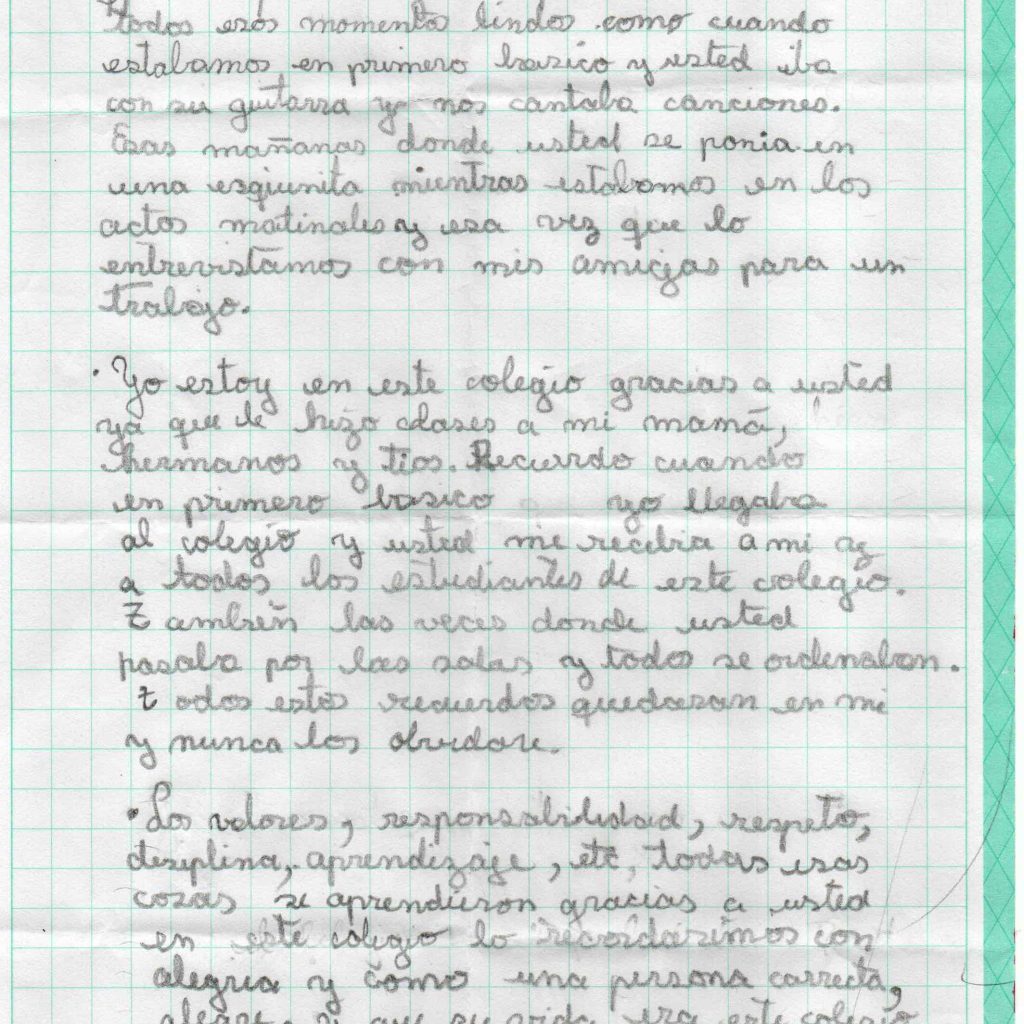 todos esos momentos lindos como cuando
estabamos en primero basico y usted iba
con su guitarra y nos cantaba canciones.
Esas mañanas donde usted se ponia en
una esqiunita mientras estabamos en los
actos matinales y esa vez que lo
entrevistamos con mis amigas para un
trabajo.
· Yo estoy en este colegio gracias a usted
ya que le hizo clases a mi mamá,
hermanos y tios. Recuerdo cuando
en primero basico yo llegaba
al colegio y usted me recibia a mi y
a todos los estudiantes de este colegio.
Tambien las veces donde usted
pasaba por las salas y todos se ordenaban.
Todos estos recuerdos quedaran en mi
y nunca los olvidare.
· Los valores, responsabilidad, respeto,
desiplina, aprendizaje, etc, todas esas
cozas se aprendieron gracias a usted
en este colegio lo recordaremos con
alegria y como una persona correcta,
alegre, y que su vida era este colegio